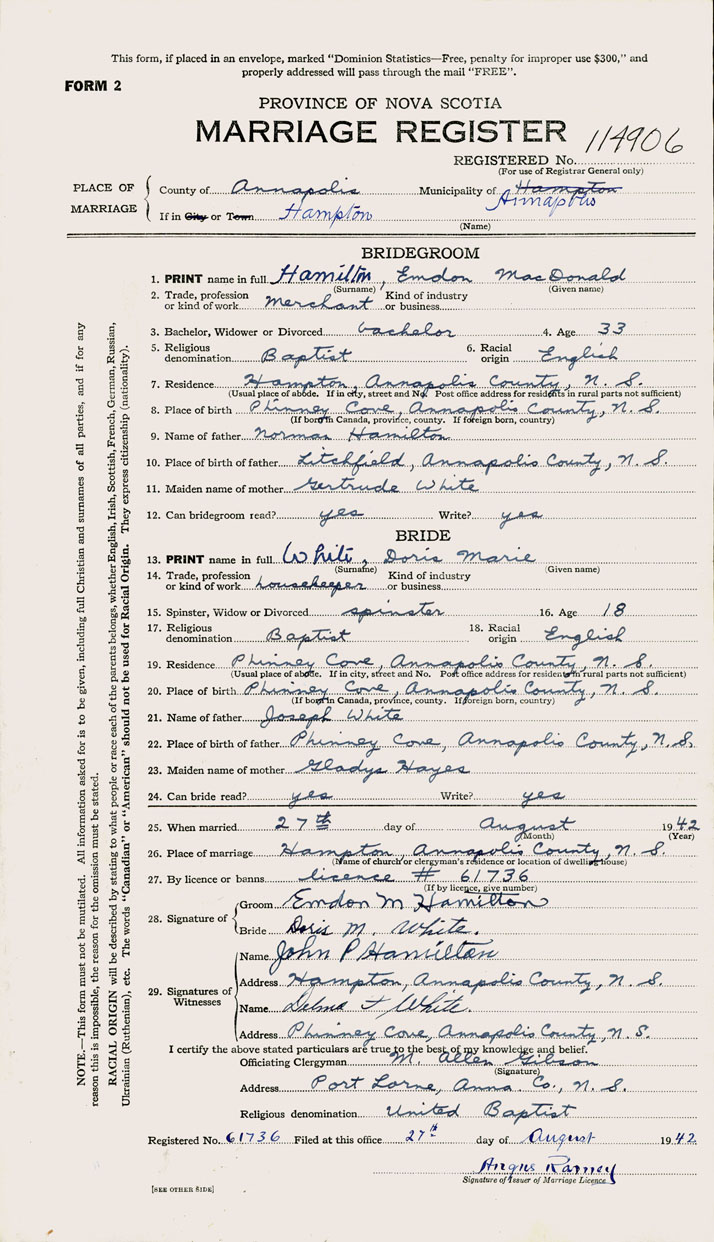 This form, if placed in an envelope, marked "Dominion Statistics—Free, penalty for improper use $300," and
properly addressed will pass through the mail "FREE".
FORM 2
PROVINCE OF NOVA SCOTIA
MARRIAGE REGISTER
REGISTERED No. 114906
(For use of Registrar General only)
PLACE OF MARRIAGE
County of Annapolis Municipality of Hampton Annapolis
If in City or Town Hampton
(Name)
BRIDEGROOM
1. PRINT name in full Hamilton, Emdon MacDonald
(Surname) (Given name)
2. Trade, profession or kind of work Merchant Kind of industry or business
3. Bachelor, Widower or Divorced bachelor 4. Age 33
5. Religious denomination Baptist 6. Racial origin English
7. Residence Hampton, Annapolis County, N. S.
(Usual place of abode. If in city, street and No. Post office address for residents in rural parts not sufficient)
8. Place of birth Phinney Cove, Annapolis County, N. S.
(If born in Canada, province, county. If foreign born, country)
9. Name of father Norman Hamilton
10. Place of birth of father Litchfield, Annapolis County, N. S.
11. Maiden name of mother Gertrude White
12. Can bridegroom read? yes Write? yes
BRIDE
13. PRINT name in full White, Doris Marie
(Surname) (Given name)
14. Trade, profession or kind of work housekeeper Kind of industry or business
15. Spinster, Widow or Divorced spinster 16. Age 18
17. Religious denomination Baptist 18. Racial origin English
19. Residence Phinney Cove, Annapolis County, N. S.
(Usual place of abode. If in city, street and No. Post office address for residents in rural parts not sufficient)
20. Place of birth Phinney Cove, Annapolis County, N. S.
(If born in Canada, province, county. If foreign born, country)
21. Name of father Joseph White
22. Place of birth of father Phinney Cove, Annapolis County, N. S.
23. Maiden name of mother Gladys Hayes
24. Can bride read? yes Write? yes
25. When married 27th day of August 1942
(Month) (Year)
26. Place of marriage Hampton, Annapolis County, N. S.
(Name of church or clergyman's residence or location of dwelling house)
27. By licence or banns licence # 61736
(If by licence, give number)
28. Signature of
Groom Emdon M Hamilton
Bride Doris M. White.
29. Signatures of Witnesses
Name John P Hamilton
Address Hampton, Annapolis County, N. S.
Name White.
Address Phinney Cove, Annapolis County, N. S.
I certify the above stated particulars are true to the best of my knowledge and belief.
Officiating Clergyman M. Allen Gibson
(Signature)
Address Port Lorne, Anna. Co., N. S.
Religious denomination United Baptist
Registered No. 61736 Filed at this office 27th day of August 1942
Angus Ramey
Signature of Issuer of Marriage Licence
[SEE OTHER SIDE]
NOTE.—This form must not be mutilated. All information asked for is to be given, including full Christian and surnames of all parties, and if for any
reason this is impossible, the reason for the omission must be stated.
RACIAL ORIGIN will be described by stating to what people or race each of the parents belongs, whether English, Irish, Scottish, French, German, Russian,
Ukrainian (Ruthenian), etc. The words "Canadian" or "American" should not be used for Racial Origin. They express citizenship (nationality).